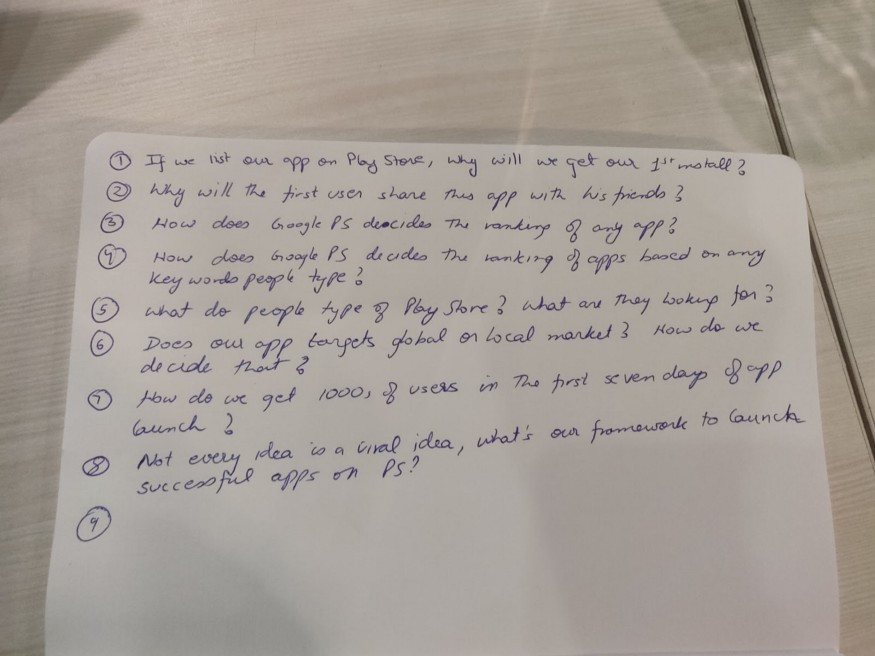 ① If we list our app on Play Store, why will we get our 1st install?
② Why will the first user share this app with his friends?
③ How does Google PS deecides the ranking of any app?
④ How does Google PS decides the ranking of apps based on any
key words people type?
⑤ what do people type of Play Store? what are they looking for?
⑥ Does our app targets global or local market? How do we
decide that?
⑦ How do we get 1000s of users in the first seven days of app
launch?
⑧ Not every idea is a viral idea, what's our framework to launch
successful apps on PS?
⑨